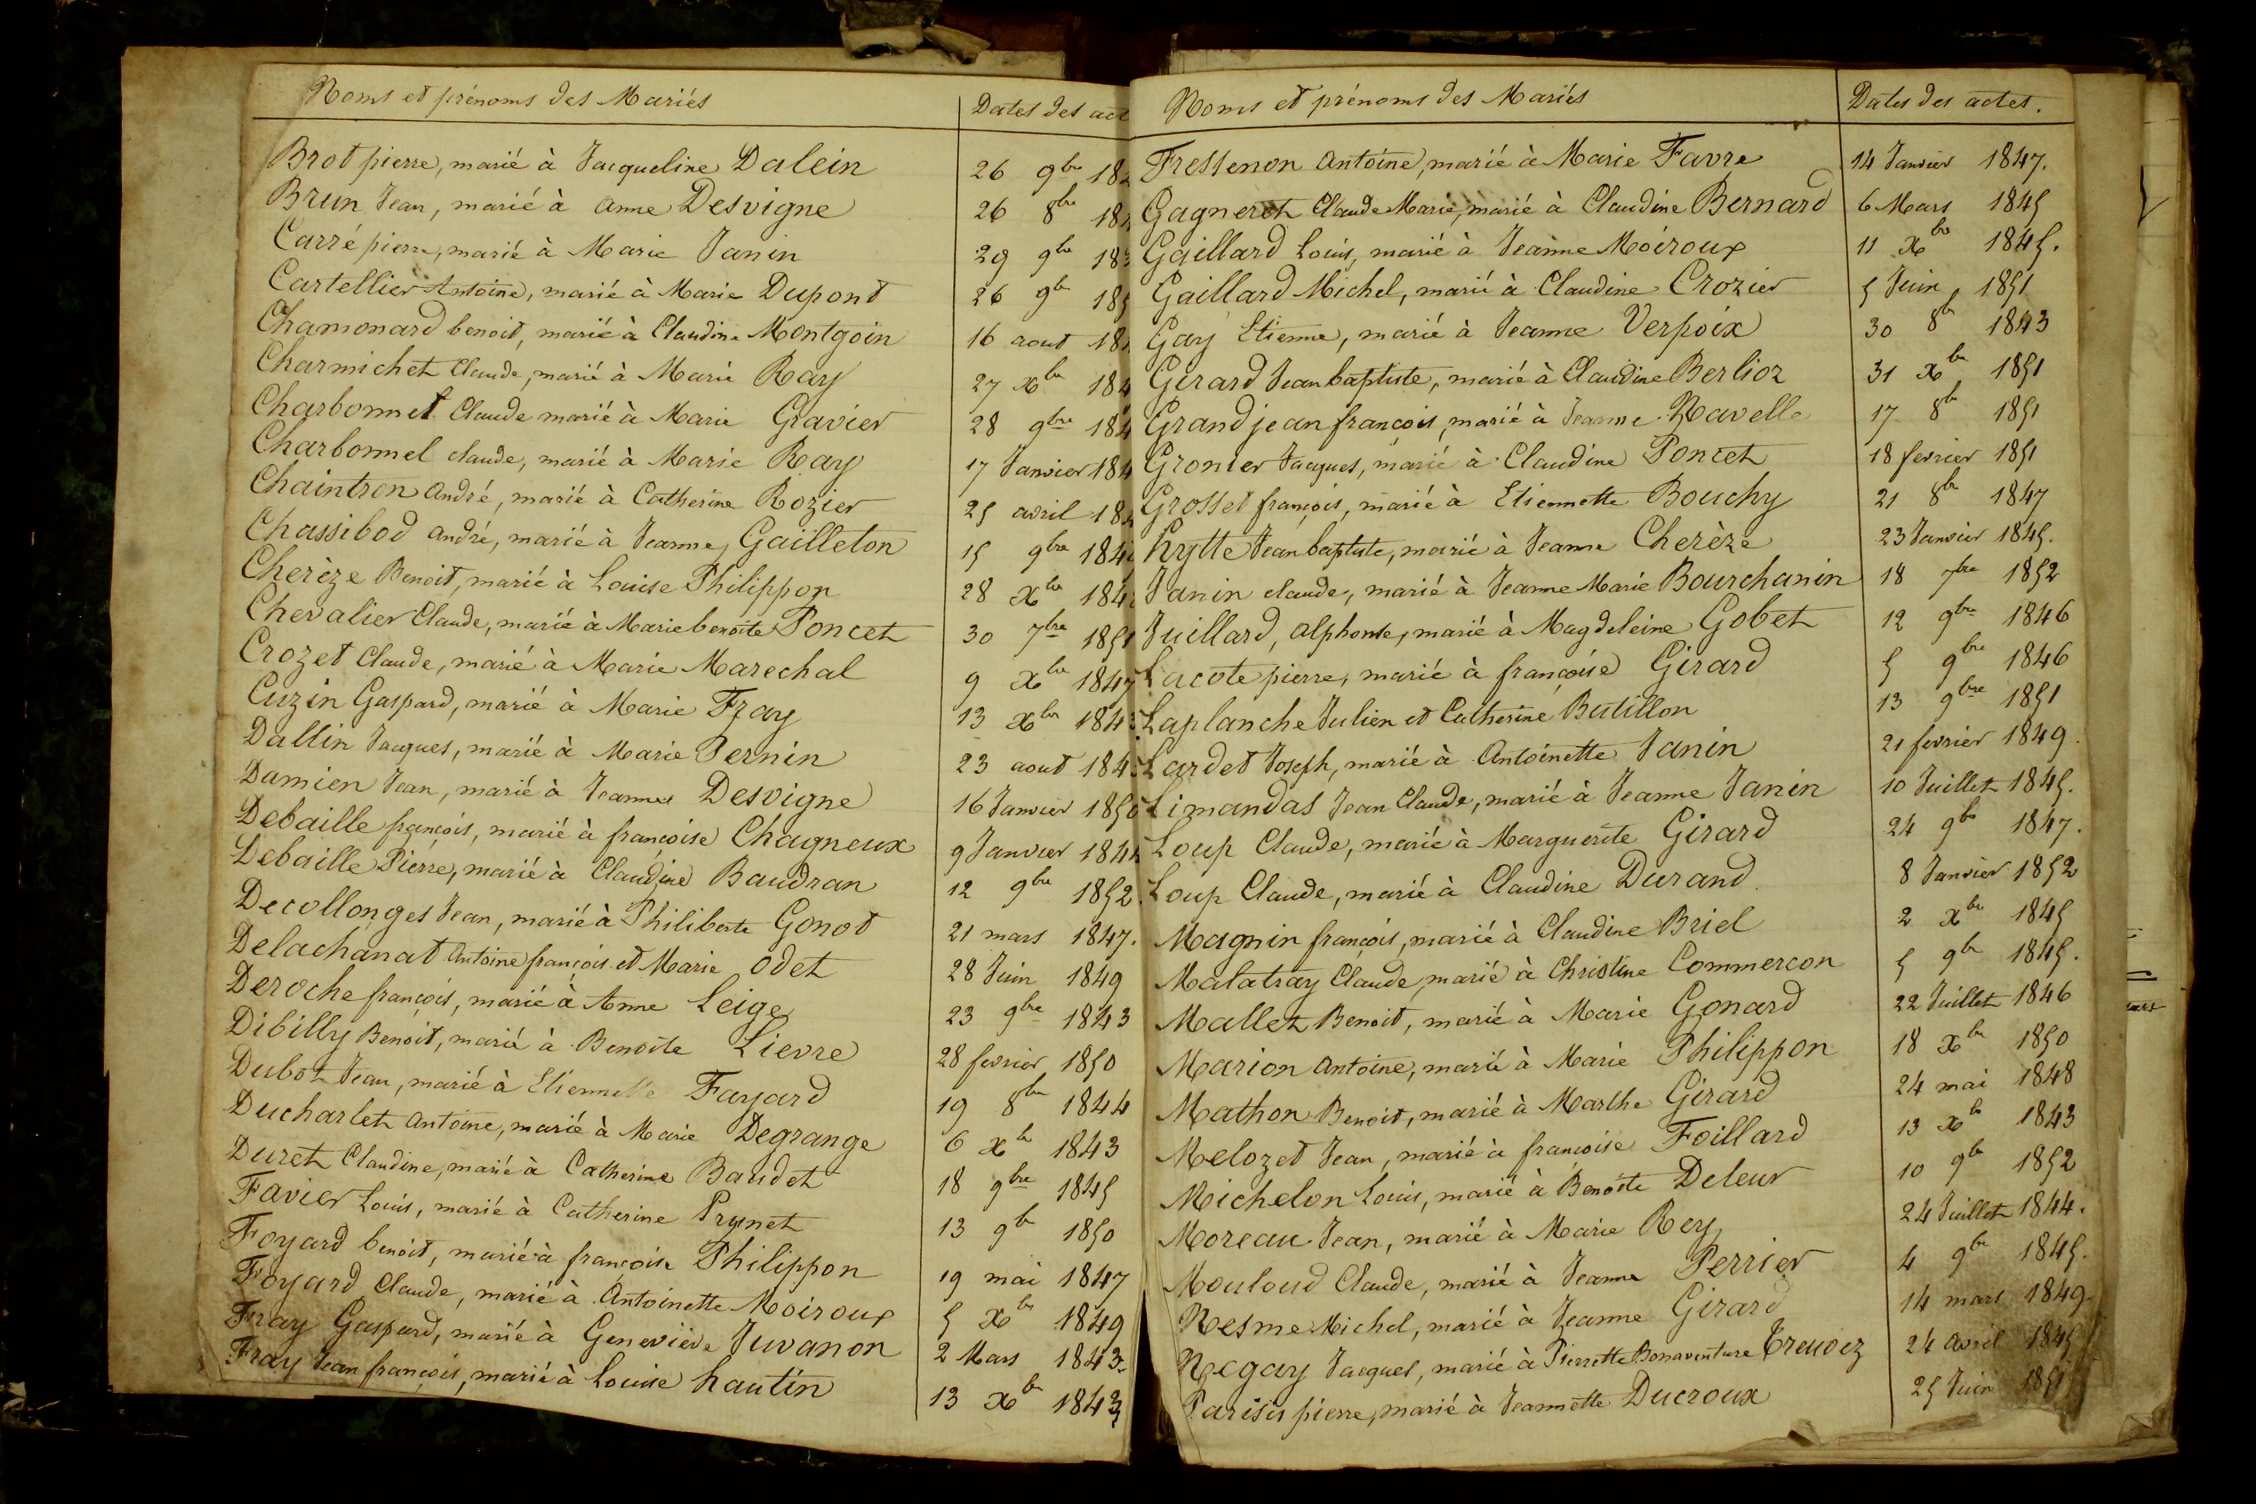 Noms et prénoms des Mariés Dates des act
Brot pierre, marié à Jacqueline Dalein 26 9bre 18
Brun Jean, marié à anne Desvigne 26 8bre 18
Carré pierre, marié à Marie Janin 29 9bre 183
Cartellier Antoine, marié à Marie Dupont 26 9bre 185
Chamonard benoit, marié à Claudine Montgoin 16 aout 18
Charmichet Claude, marié à Marie Ray 27 xbre 184
Charbonnet Claude marié à Marie Gravier 28 9bre 184
Charbonnel claude, marié à Marie Ray 17 Janvier 184
Chaintron andré, marié à Catherine Rozier 25 avril 18
Chassibod andré, marié à Jeanne Gailleton 15 9bre 184
Cherèze Benoit, marié à Louise Philippon 28 xbre 184
Chevalier Claude, marié à Marie benoite Poncet 30 7bre 1851
Crozet Claude, marié à Marie Marechal 9 xbre 1847
Cuzin Gaspard, marié à Marie Fray 13 xbre 184
Dallin Jacques, marié à Marie Pernin 23 aout 184
Damien Jean, marié à Jeanne Desvigne 16 Janvier 1850
Debaille françois, marié à françoise Chagneux 9 Janvier 1844
Debaille Pierre, marié à Claudine Baudran 12 9bre 1852.
Decollonges Jean, marié à Philiberte Gonot 21 mars 1847.
Delachanat Antoine françois et Marie Odet 28 Juin 1849
Deroche françois, marié à Anne Leige 23 9bre 1843
Dibilly Benoit, marié à Benoite Lievre 28 fevrier 1850
Dubot Jean, marié à Etiennette Fayard 19 8bre 1844
Ducharlet Antoine, marié à Marie Degrange 6 xbre 1843
Duret Claudine, marié à Catherine Baudet 18 9bre 1845
Favier Louis, marié à Catherine Prynet 13 9bre 1850
Foyard benoit, marié à françoise Philippon 19 mai 1847
Foyard Claude, marié à Antoinette Moiroux 5 xbre 1849
Fray Gaspard, marié à Geneviève Juvanon 2 Mars 1843
Fray Jean françois, marié à Louise hautin 13 xbre 1843
Noms et prénoms des Mariés Dates des actes.
Fressenon Antoine, marié à Marie Favre 14 Janvier 1847.
Gagneret Claude Marie, marié à Claudine Bernard 6 Mars 1845
Gaillard Louis, marié à Jeanne Moiroux 11 xbre 1845.
Gaillard Michel, marié à Claudine Crozier 5 Juin 1851
Gay Etienne, marié à Jeanne Verpoix 30 8bre 1843
Girard Jean baptiste, marié à Claudine Berlioz 31 xbre 1851
Grandjean françois, marié à Jeanne Navelle 17 8bre 1851
Gronier Jacques, marié à Claudine Poncet 18 fevrier 1851
Grosset françois, marié à Etiennette Bouchy 21 8bre 1847
hytte Jean baptiste, marié à Jeanne Cherèze 23 Janvier 1845.
Janin claude, marié à Jeanne Marie Bourchanin 18 7bre 1852
Juillard, alphonse, marié à Magdeleine Gobet 12 9bre 1846
Lacote pierre, marié à françoise Girard 5 9bre 1846
Laplanche Julien et Catherine Butillon 13 9bre 1851
Lardet Joseph, marié à Antoinette Janin 21 fevrier 1849.
Limandas Jean Claude, marié à Jeanne Janin 10 Juillet 1845.
Loup Claude, marié à Marguerite Girard 24 9bre 1847.
Loup Claude, marié à Claudine Durand 8 Janvier 1852
Magnin françois, marié à Claudine Briel 2 xbre 1845
Malatray Claude, marié à Christine Commercon 5 9bre 1845.
Mallet Benoit, marié à Marie Gonard 22 Juillet 1846
Marion Antoine, marié à Marie Philippon 18 xbre 1850
Mathon Benoit, marié à Marthe Girard 24 mai 1848
Melozet Jean, marié à françoise Foillard 13 xbre 1843
Michelon Louis, marié à Benoite Deleur 10 9bre 1852
Moreau Jean, marié à Marie Rey 24 Juillet 1844.
Mouloud Claude, marié à Jeanne Perrier 4 9bre 1845.
Nesme Michel, marié à Jeanne Girard 14 mars 1849.
Negay Jacques, marié à Pierrette Bonaventure 24 avril 1845
Parisis pierre, marié à Jeannette Ducroux 25 Juin 1851